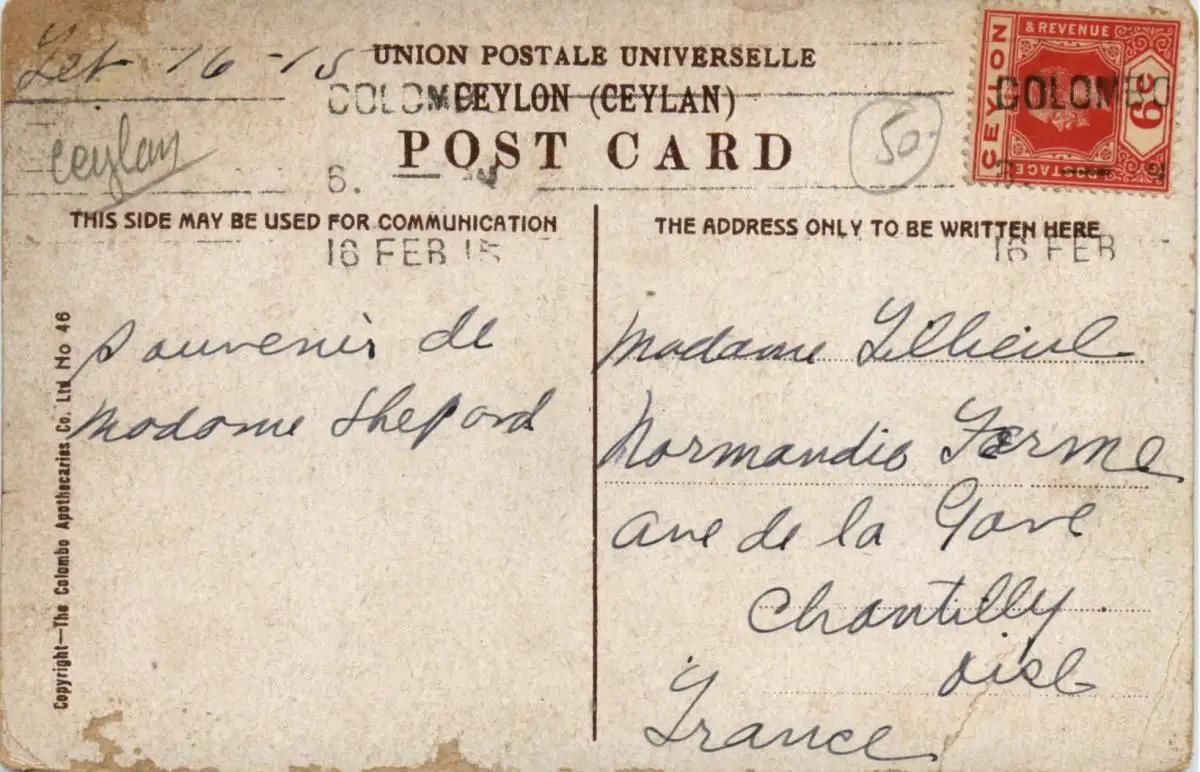 Feb 16 - 15
UNION POSTALE UNIVERSELLE
CEYLON (CEYLAN)
POST CARD
COLOMB
6.
16 FEB 15
ceylan
50
CEYLON
& REVENUE
POSTAGE
6 C
COLOMBO
16 FEB
THIS SIDE MAY BE USED FOR COMMUNICATION
THE ADDRESS ONLY TO BE WRITTEN HERE
Souvenir de
Madame Shepard
Madame
Normandie Ferme
ave de la Gare
Chantilly
oise
France
Copyright—The Colombo Apothecaries Co. Ltd No 46